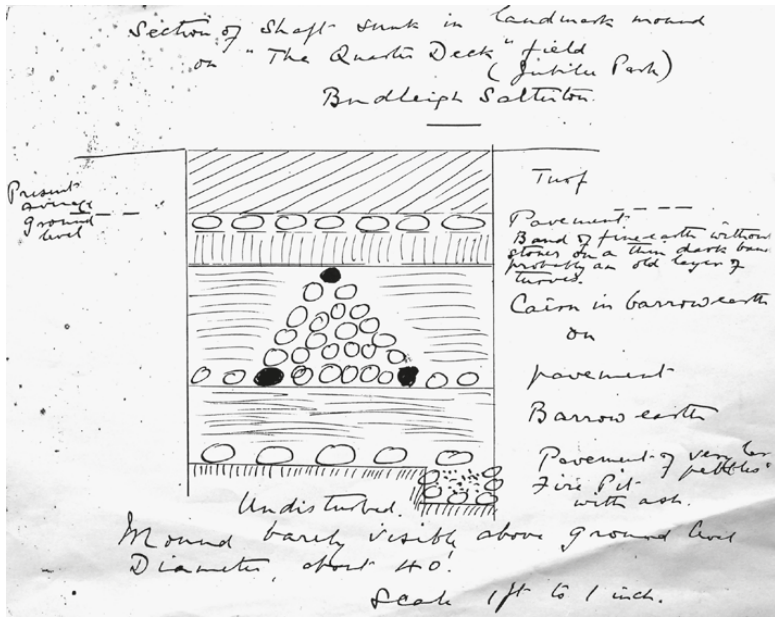 Section of Shaft sunk in landmark mound
on "The Quarter Deck" field
(Jubilee Park)
Budleigh Salterton.
Present
average
Ground
level
Turf
Pavement
Band of fine earth without
stones on a thin dark band
probably an old layer of
turves.
Cairn in barrow earth
on
pavement
Barrow earth
Pavement of very
pebbles
Fire Pit
with ash.
Undisturbed.
Mound barely visible above ground level
Diameter, about 40'.
Scale 1 ft to 1 inch.